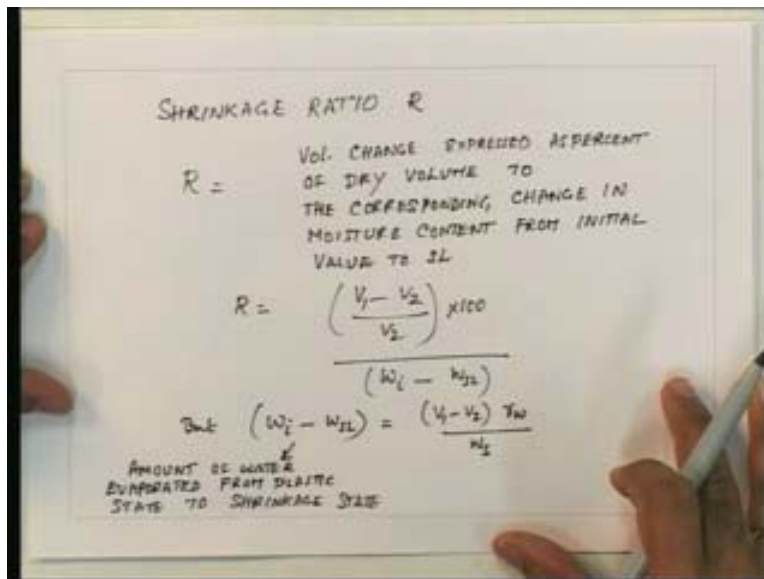 SHRINKAGE RATIO R
VOL. CHANGE EXPRESSED AS PERCENT
R = OF DRY VOLUME TO
THE CORRESPONDING CHANGE IN
MOISTURE CONTENT FROM INITIAL
VALUE TO SL
R = ((V₁ - V₂) / V₂) x100 / (Wi - WSL)
But (Wi - WSL) = (V₁ - V₂) γw / Ws
AMOUNT OF WATER
EVAPORATED FROM PLASTIC
STATE TO SHRINKAGE STATE